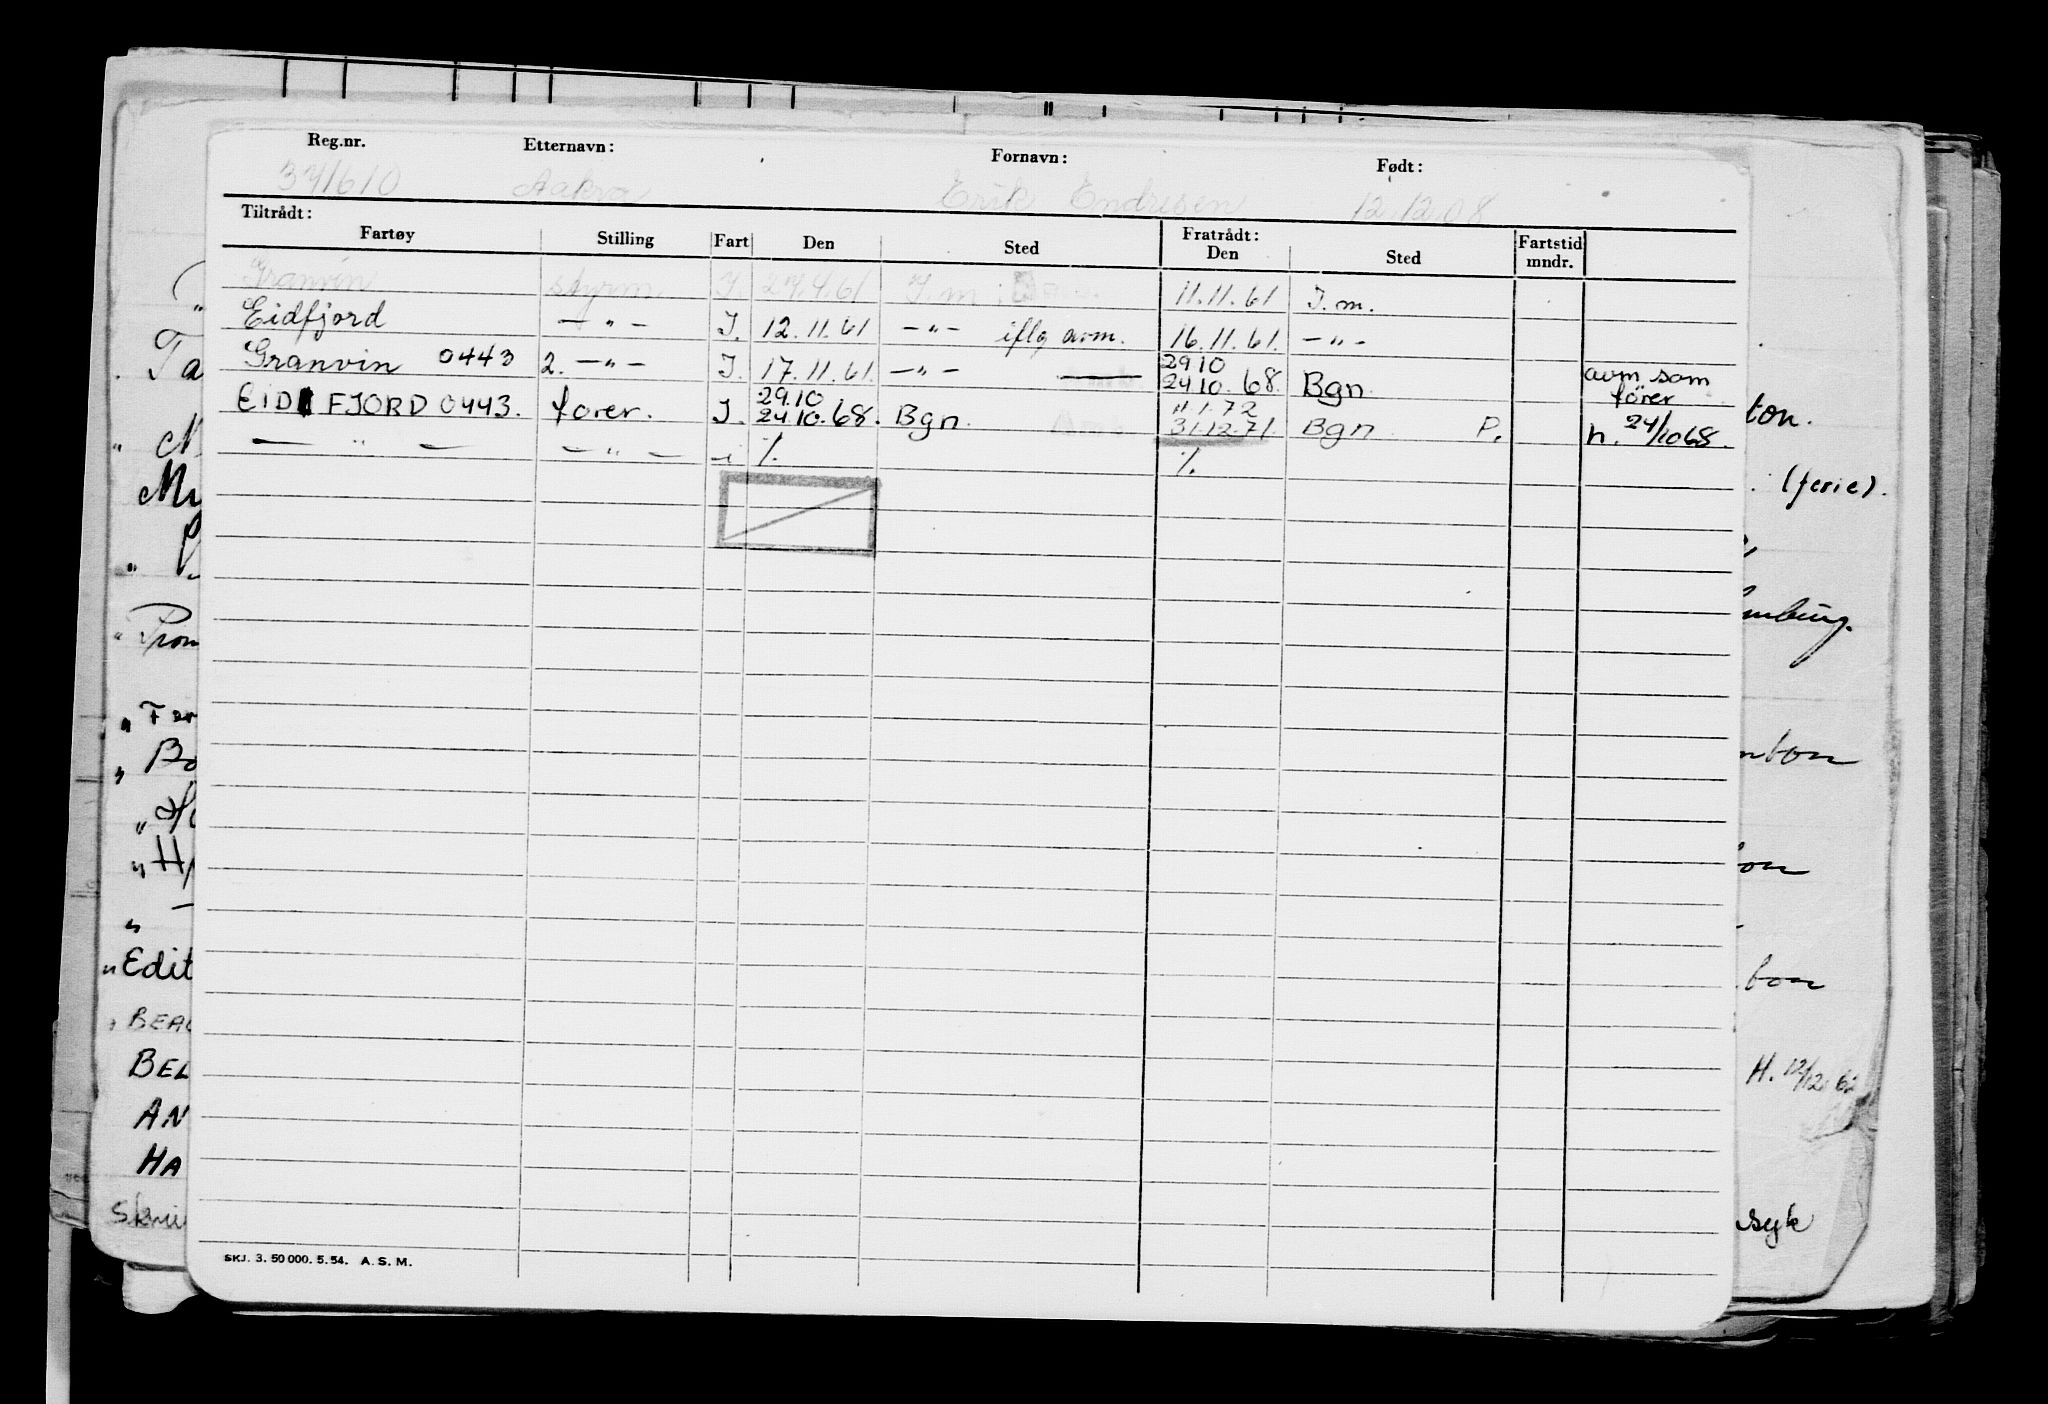 Reg.nr. Etternavn: Fornavn: Født:
371610 Aakra Erik Endresen 12.12.08
Tiltrådt: Fratrådt:
Fartøy Stilling Fart Den Sted Den Sted Fartstid mndr.
Granvin styrm J. 27.4.61 J.m. 11.11.61 J.m.
Eidfjord — " — J. 12.11.61 — " — iflg avm. 16.11.61. — " —
29.10
Granvin 0443 2. — " — J. 17.11.61. — " — — 24.10.68. Bgn. avm som fører
29.10 11.1.72
EIDFJORD 0443. fører. J. 24.10.68. Bgn. 31.12.71. Bgn P. n. 24/10 68.
— " — — " — i %. %.
SKJ. 3. 50 000. 5. 54. A. S. M.
Ta
Pron
Edit
BEL
AN
HA
ton.
(ferie).
mburg.
bon
H. 12/12 62
syk